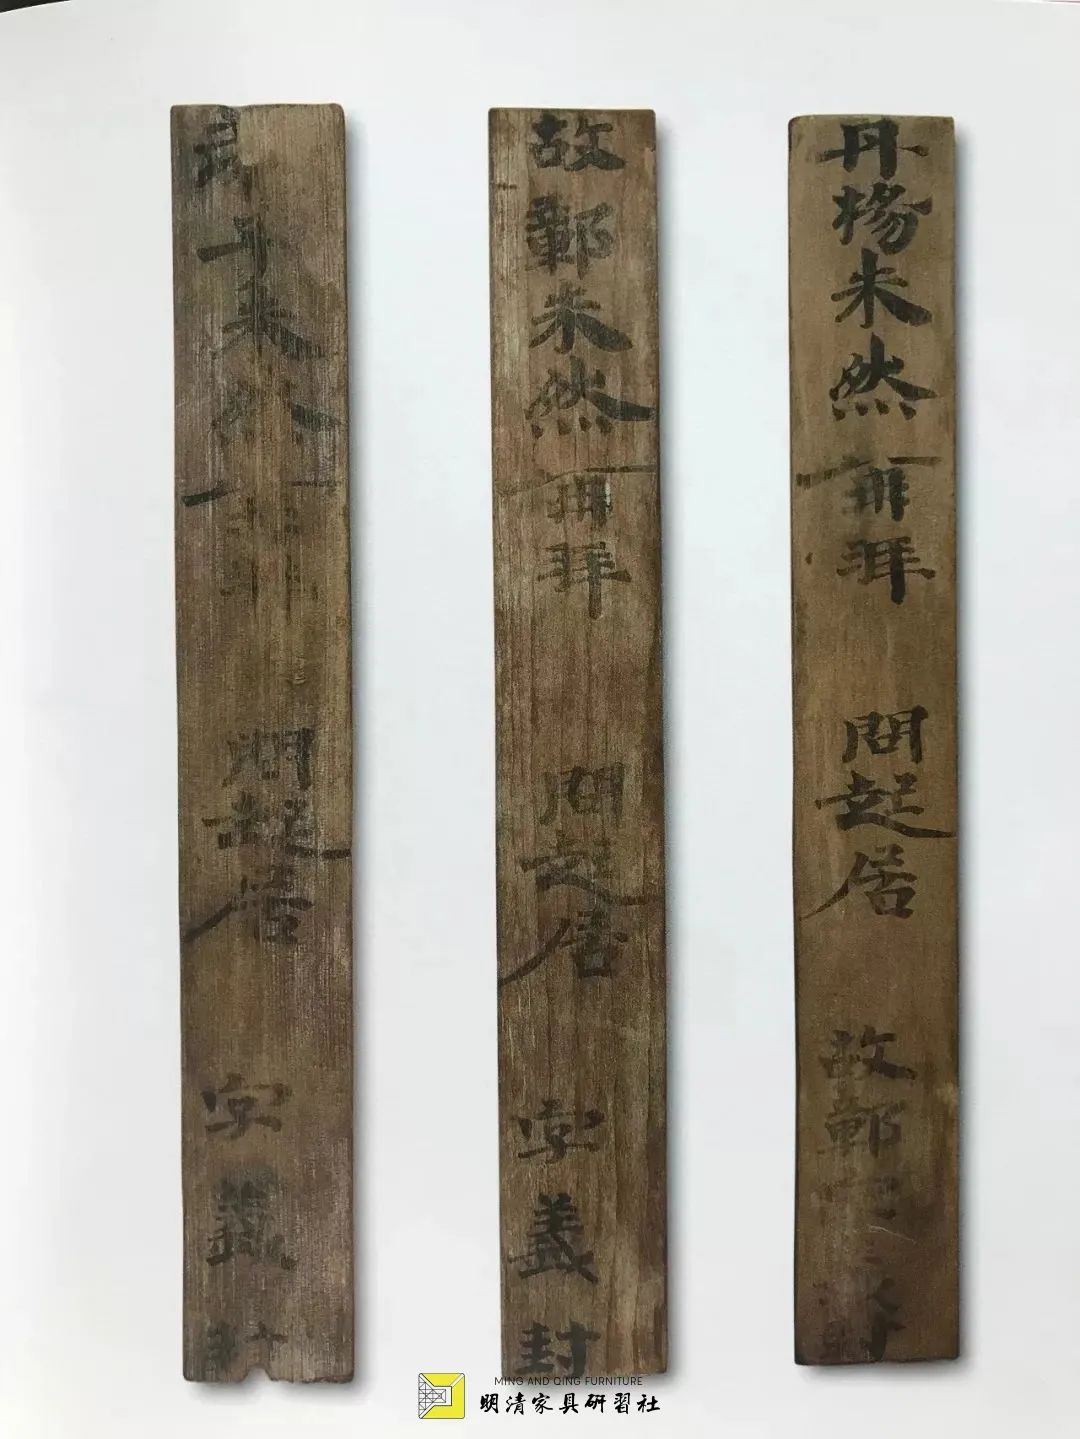 丹楊朱然再拜 問起居 故鄣字義封
故鄣朱然再拜 問起居 字義封
弟子朱然再拜 問起居 字義封
MING AND QING FURNITURE
明清家具研習社